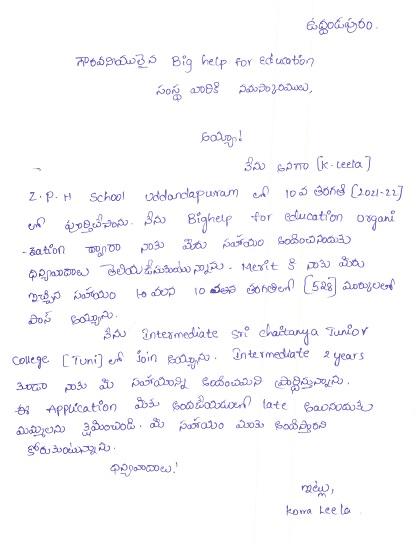 ఉద్దండపురం.
గౌరవనీయులైన Big help for Education
సంస్థ వారికి నమస్కారములు,
అయ్యా!
నేను అనగా [K-Leela]
Z.P.H School Uddandapuram లో 10వ తరగతి [2021-22]
లో పూర్తిచేసాను. నేను Bighelp for education organi
-sation ద్వారా నాకు మీరు సహాయం అందించినందుకు
ధన్యవాదాలు తెలియజేసుకుంటున్నాను. Merit కి నాకు మీరు
ఇచ్చిన సహాయం 10 తరగతిలో [528] మార్కులతో
పాస్ అయ్యాను.
నేను Intermediate Sri chaitanya Junior
College [Tuni] లో join అయ్యాను. Intermediate 2 years
కూడా నాకు మీ సహాయాన్ని అందించమని ప్రార్థిస్తున్నాను.
ఈ Application మీకు అందజేయడంలో late అయినందుకు
మమ్మలను క్షమించండి. మీ సహాయం మాకు అందిస్తారని
కోరుకుంటున్నాను.
ధన్యవాదాలు!
ఇట్లు,
Korra Leela